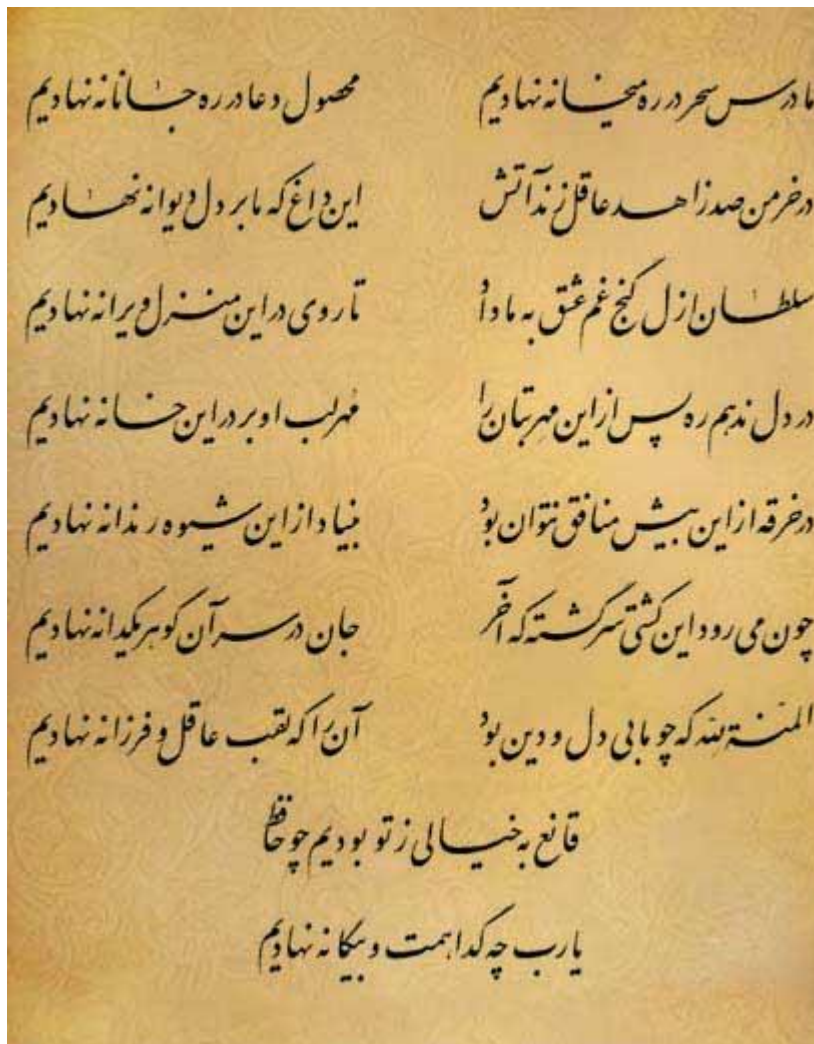 ما درس سحر در ره میخانه نهادیم محصول دعا در ره جانانه نهادیم
در خرمن صد زاهد عاقل زند آتش این داغ که ما بر دل دیوانه نهادیم
سلطان ازل گنج غم عشق به ما داد تا روی در این منزل ویرانه نهادیم
در دل ندهم ره پس از این مهر بتان را مهر لب او بر در این خانه نهادیم
در خرقه از این بیش منافق نتوان بود بنیاد از این شیوه رندانه نهادیم
چون می‌رود این کشتی سرگشته که آخر جان در سر آن گوهر یکدانه نهادیم
المنة لله که چو ما بی دل و دین بود آن را که لقب عاقل و فرزانه نهادیم
قانع به خیالی ز تو بودیم چو حافظ
یا رب چه گدا همت و بیگانه نهادیم